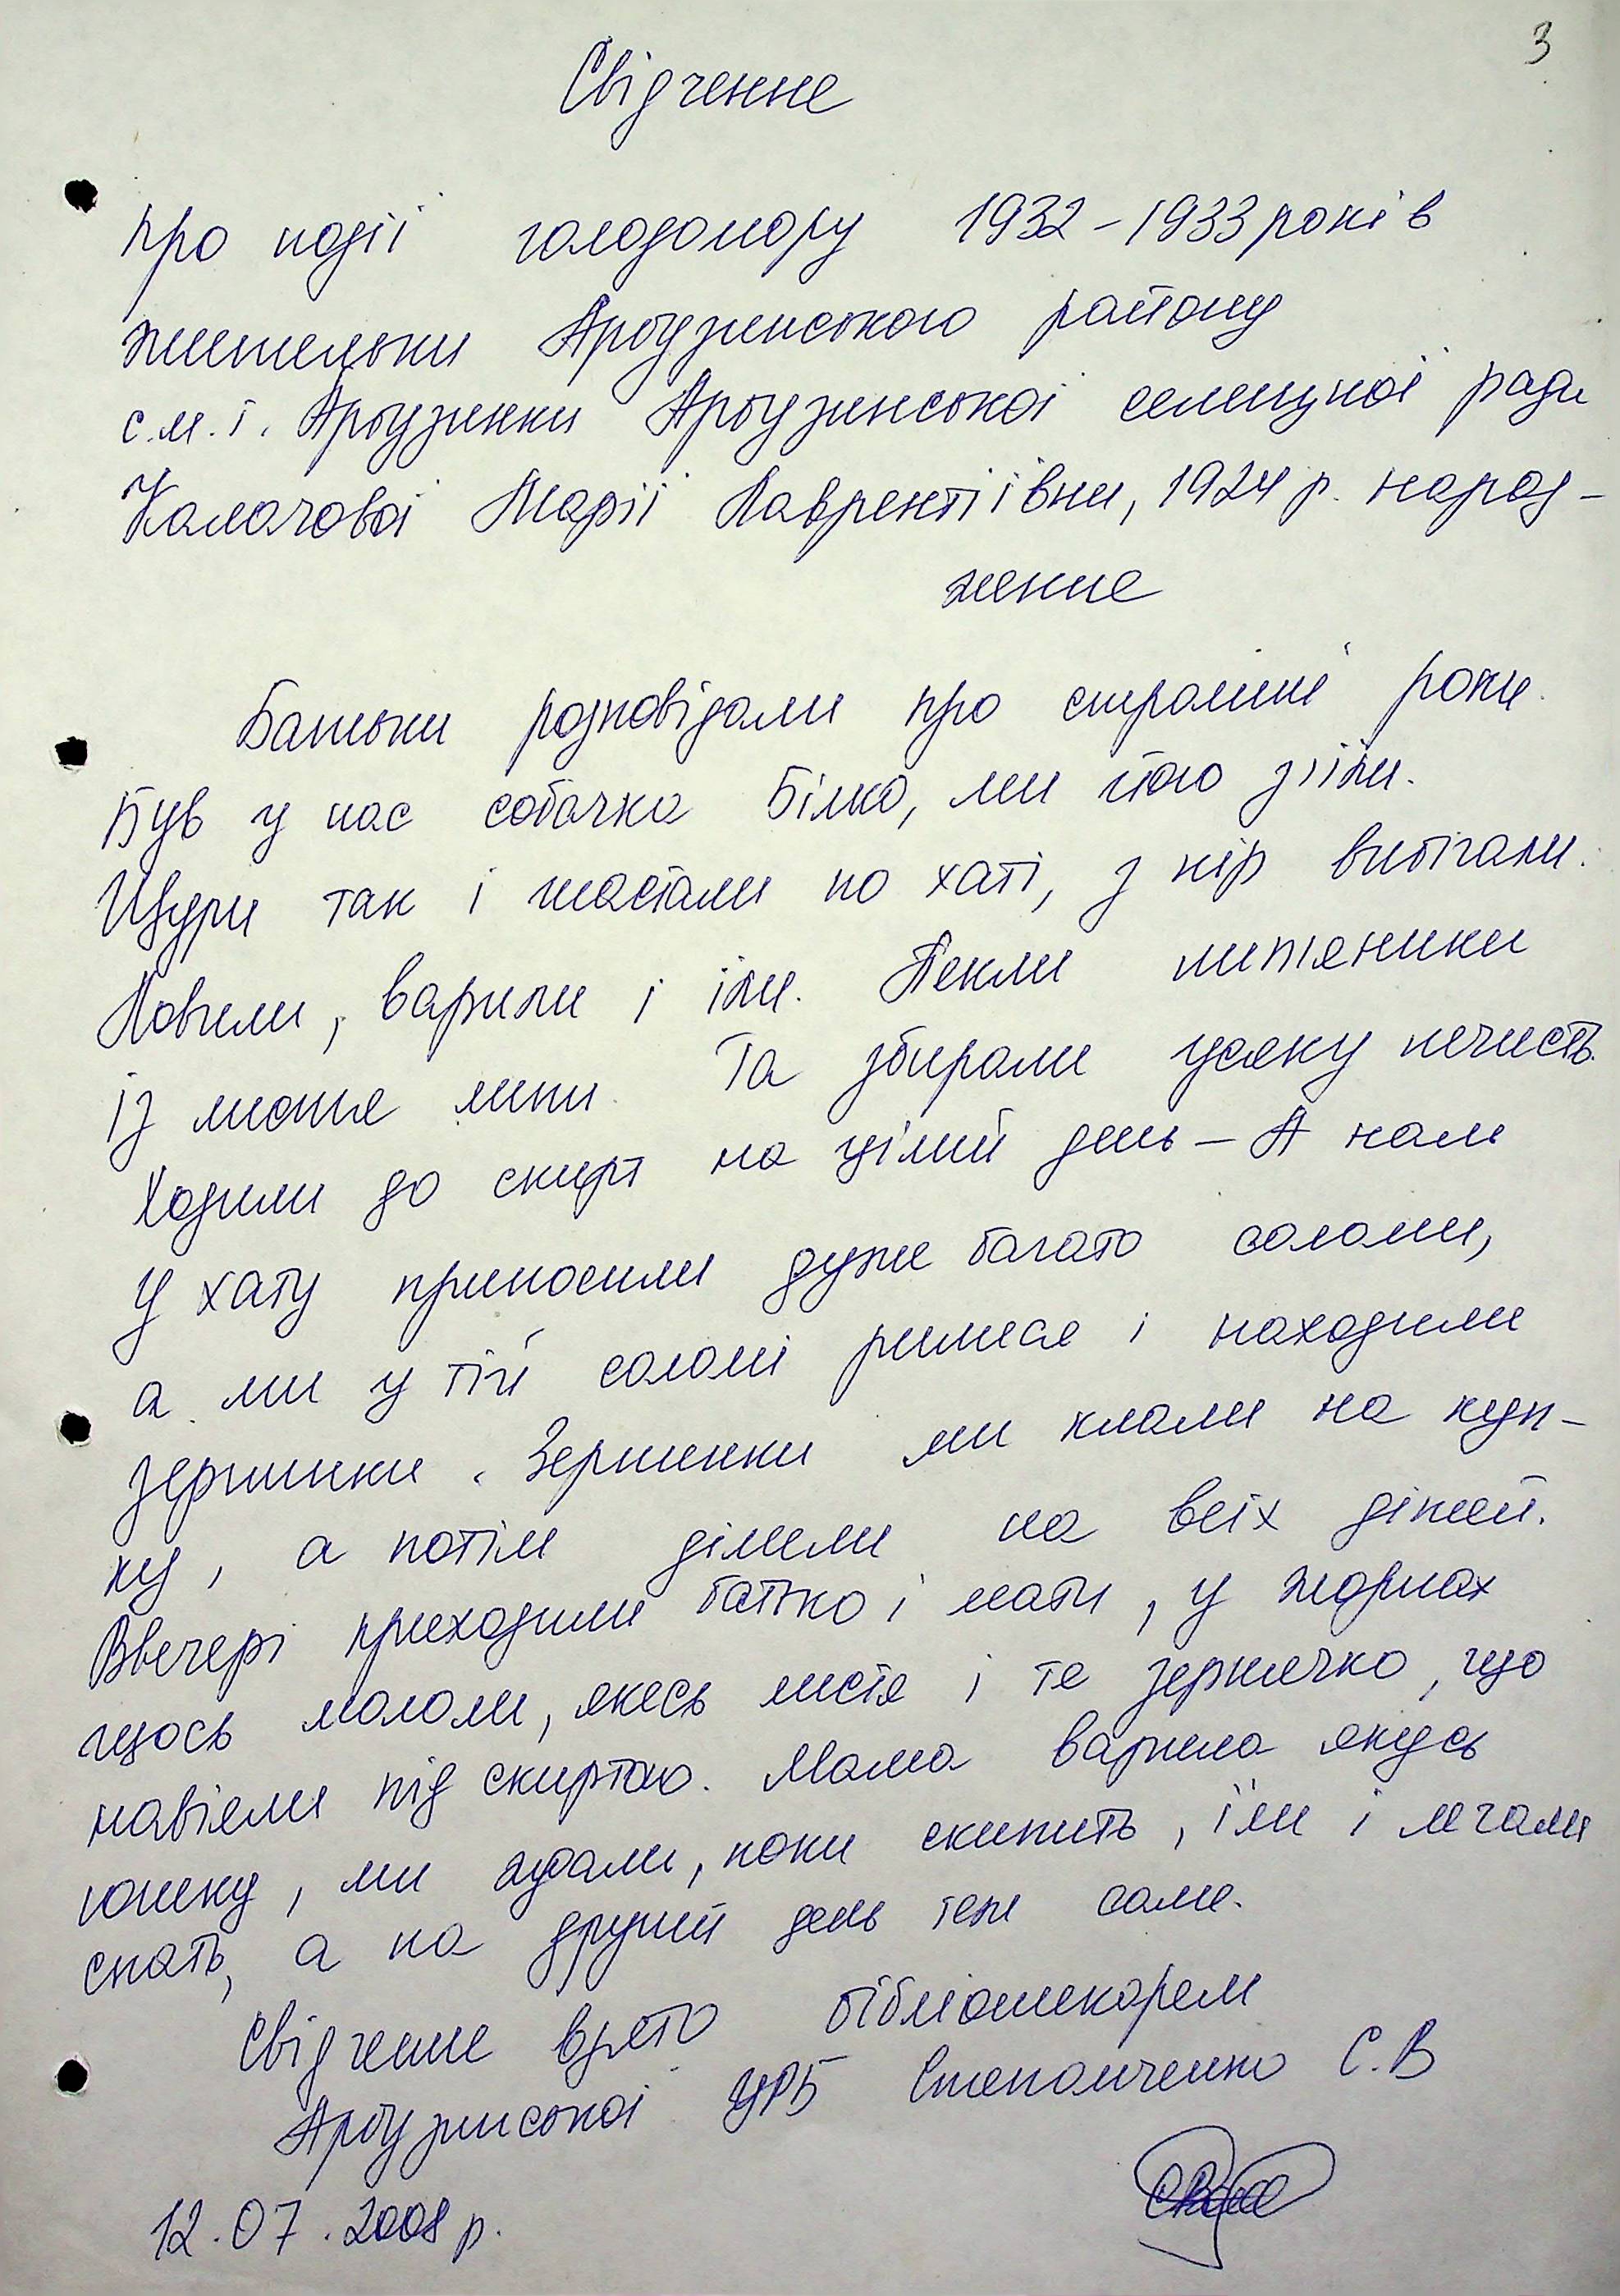 3
Свідчення
про події голодомору 1932-1933 років
жительки Арбузинського району
с.м.т. Арбузинки Арбузинської селищної ради
Калачової Марії Лаврентіївни, 1924 р. народ-
ження
Батьки розповідали про страшні роки.
Був у нас собачка Білко, ми його з'їли.
Щури так і шастали по хаті, з нір вибігали.
Ловили, варили і їли. Пекли липяники
із листя липи. Та збирали усяку нечисть.
Ходили до скирт на цілий день - А нам
у хату приносили дуже багато соломи,
а ми у тій соломі рилися і находили
зернинки. Зернинки ми клали на куп-
ку, а потім ділили на всіх дітей.
Ввечері приходили батько і мати, у жорнах
щось мололи, якесь листя і те зернячко, що
навіяли під скиртою. Мама варила якусь
юшку, ми ждали, поки скипить, їли і лягали
спать, а на другий день теж саме.
Свідчення взято бібліотекарем
Арбузинської ЦРБ Степанченко С.В
12.07.2008 р.